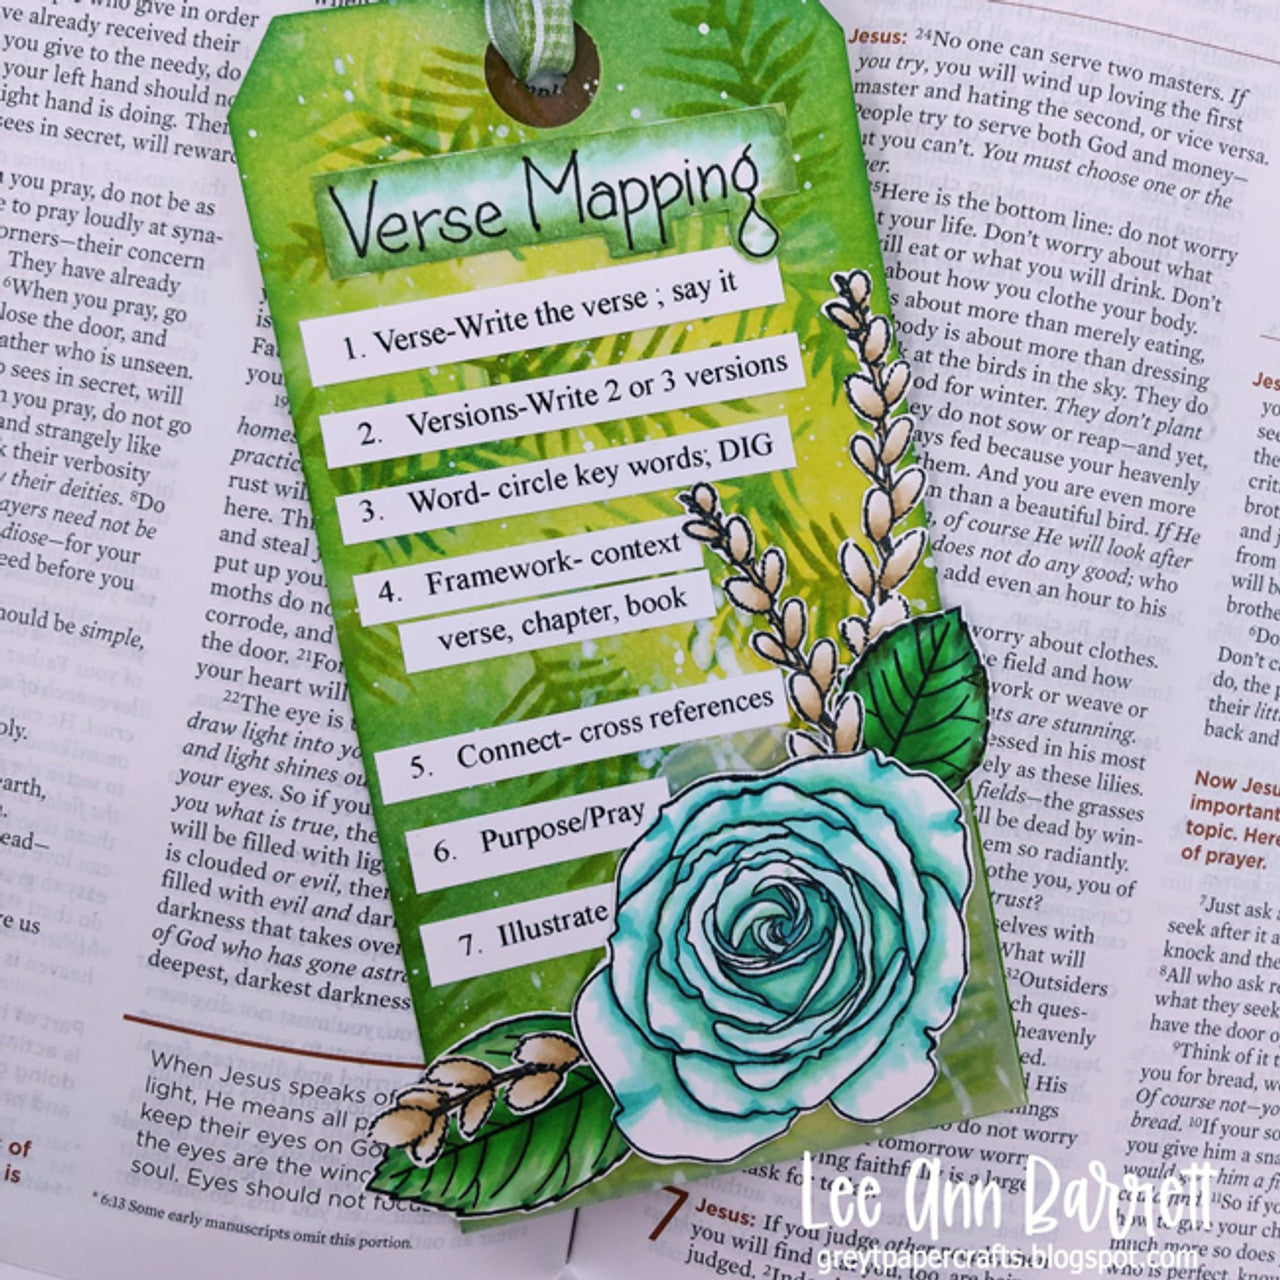 Verse Mapping
1. Verse-Write the verse ; say it
2. Versions-Write 2 or 3 versions
3. Word- circle key words; DIG
4. Framework- context
verse, chapter, book
5. Connect- cross references
6. Purpose/Pray
7. Illustrate
who give in order
ve already received their
you give to the needy, do
your left hand should no
ight hand is doing. Then
sees in secret, will reward
you pray, do not be as
e to pray loudly at syna-
orners—their concern
They have already
6When you pray, go
lose the door, and
ather who is unseen.
sees in secret, will
you pray, do not go
and strangely like
their verbosity
their deities. 8Do
ayers need not be
diose—for your
eed before you
hould be simple,
oly.
earth,
ead—
re us
of
is
is
you
19
homes
practic
rust wil
here. Thi
and steal
put up you
moths do no
corrode, and
the door. 21For
your heart will
22The eye is
draw light into yo
and light shines ou
your eyes. So if you
you what is true, the
will be filled with lig
is clouded or evil, then
filled with evil and dar
darkness that takes over
of God who has gone astra
deepest, darkest darkness
When Jesus speaks of
light, He means all p
keep their eyes on Go
the eyes are the wind
soul. Eyes should not focus
* 6:13 Some early manuscripts omit this portion.
Jesus: 24No one can serve two masters. If
you try, you will wind up loving the first
master and hating the second, or vice versa.
People try to serve both God and money—
ut you can't. You must choose one or the
er.
25Here is the bottom line: do not worry
t your life. Don't worry about what
ill eat or what you will drink. Don't
about how you clothe your body.
s about more than merely eating,
body is about more than dressing
k at the birds in the sky. They do
od for winter. They don't plant
ey do not sow or reap—and yet,
ays fed because your heavenly
them. And you are even more
n than a beautiful bird. If He
, of course He will look after
does not do any good; who
add even an hour to his
worry about clothes.
e field and how
work or weave or
nts are stunning.
essed in his most
ely as these lilies.
fields—the grasses
ll be dead by win-
em so radiantly.
othe you, you of
trust?
selves with
What will
32Outsiders
ch ques-
heavenly
ed.
d His
hings
o do not worry
tomorrow worry
ving faithfully is a large
ask for
7 Jesus: If you judge other
you will find that you, too, are
judged.
Jes
yo
see
the
crit
brot
and
from
will b
brothe
6Do
Don't c
do, the
their litt
back and
Now Jesu
important
topic. Here
of prayer.
7Just ask
seek after it a
knock and the
8All who ask re
what they seek
have the door o
9Think of it
you for bread, w
Of course not—yo
bread. 10If your so
you give him a sna
would give him a f
11So if yo
how to give your ch
much more so does
who is perfect,
Lee Ann Barrett
greytpapercrafts.blogspot.com